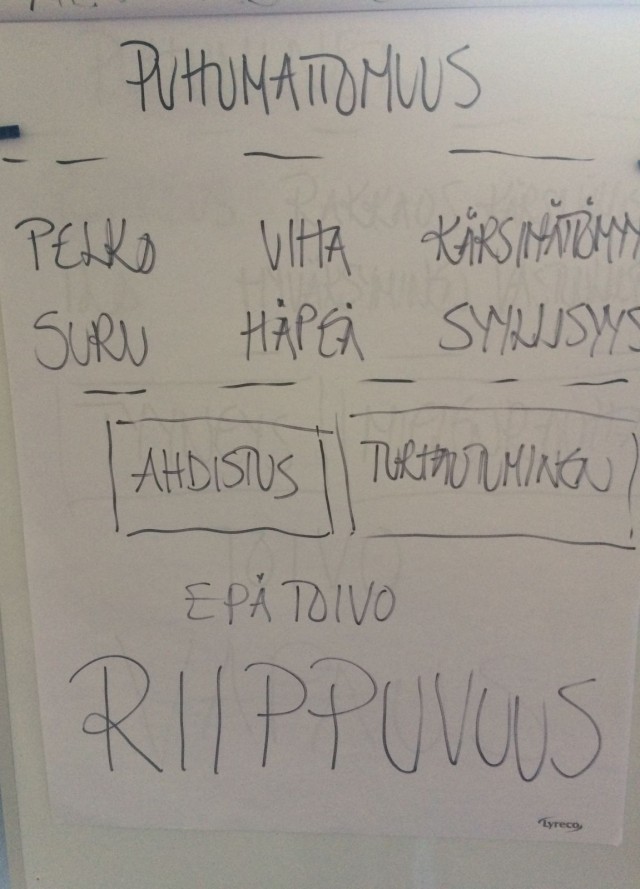 PUHUMATTOMUUS
PELKO VIHA KÄRSIMÄTTÖMYY
SURU HÄPEÄ SYYLLISYYS
AHDISTUS TURHAUTUMINEN
EPÄTOIVO
RIIPPUVUUS
Lyreco